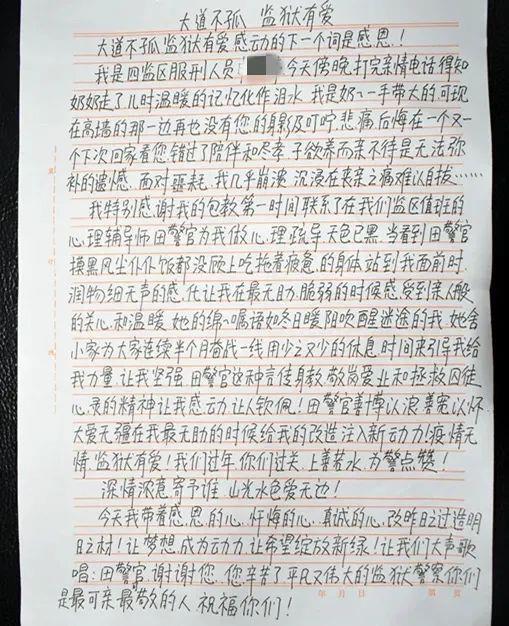 大道不孤 监狱有爱
大道不孤 监狱有爱 感动的下一个词是感恩!
我是四监区服刑人员 今天傍晚,打完亲情电话得知
奶奶走了儿时温暖的记忆化作泪水 我是奶奶一手带大的,可现
在高墙的那一边再也没有您的身影及叮咛,悲痛后悔在一个又一
个下次回家看您,错过了陪伴和尽孝 子欲养而亲不待是无法弥
补的遗憾 面对噩耗,我几乎崩溃 沉浸在丧亲之痛难以自拔……
我特别感谢我的包教第一时间联系了在我们监区值班的
心理辅导师田警官为我做心理疏导 天色已黑,当看到田警官
摸黑风尘仆仆饭都没顾上吃拖着疲惫的身体站到我面前时
润物细无声的感化让我在最无助,脆弱的时候感受到亲人般
的关心和温暖 她的绵嘱语如冬日暖阳吹醒迷途的我 她舍
小家为大家连续半个月奋战一线用少之又少的休息时间来引导我给
我力量 让我坚强 田警官这种言传身教 敬岗爱业和拯救囚徒
心灵的精神让我感动让人钦佩!田警官善博以浪善宽以怀
大爱无疆在我最无助的时候给我的改造注入新动力!疫情无
情 监狱有爱!我们过年你们过关 上善若水 为警点赞!
深情浓意寄予谁 山光水色爱无边!
今天我带着感恩的心 忏悔的心 真诚的心 改昨日之过造明
日之材!让梦想成为动力让希望绽放新绿!让我们大声歌
唱:田警官,谢谢您,您辛苦了平凡又伟大的监狱警察你们
是最可亲最敬的人 祝福你们!
年 月 日 第 页